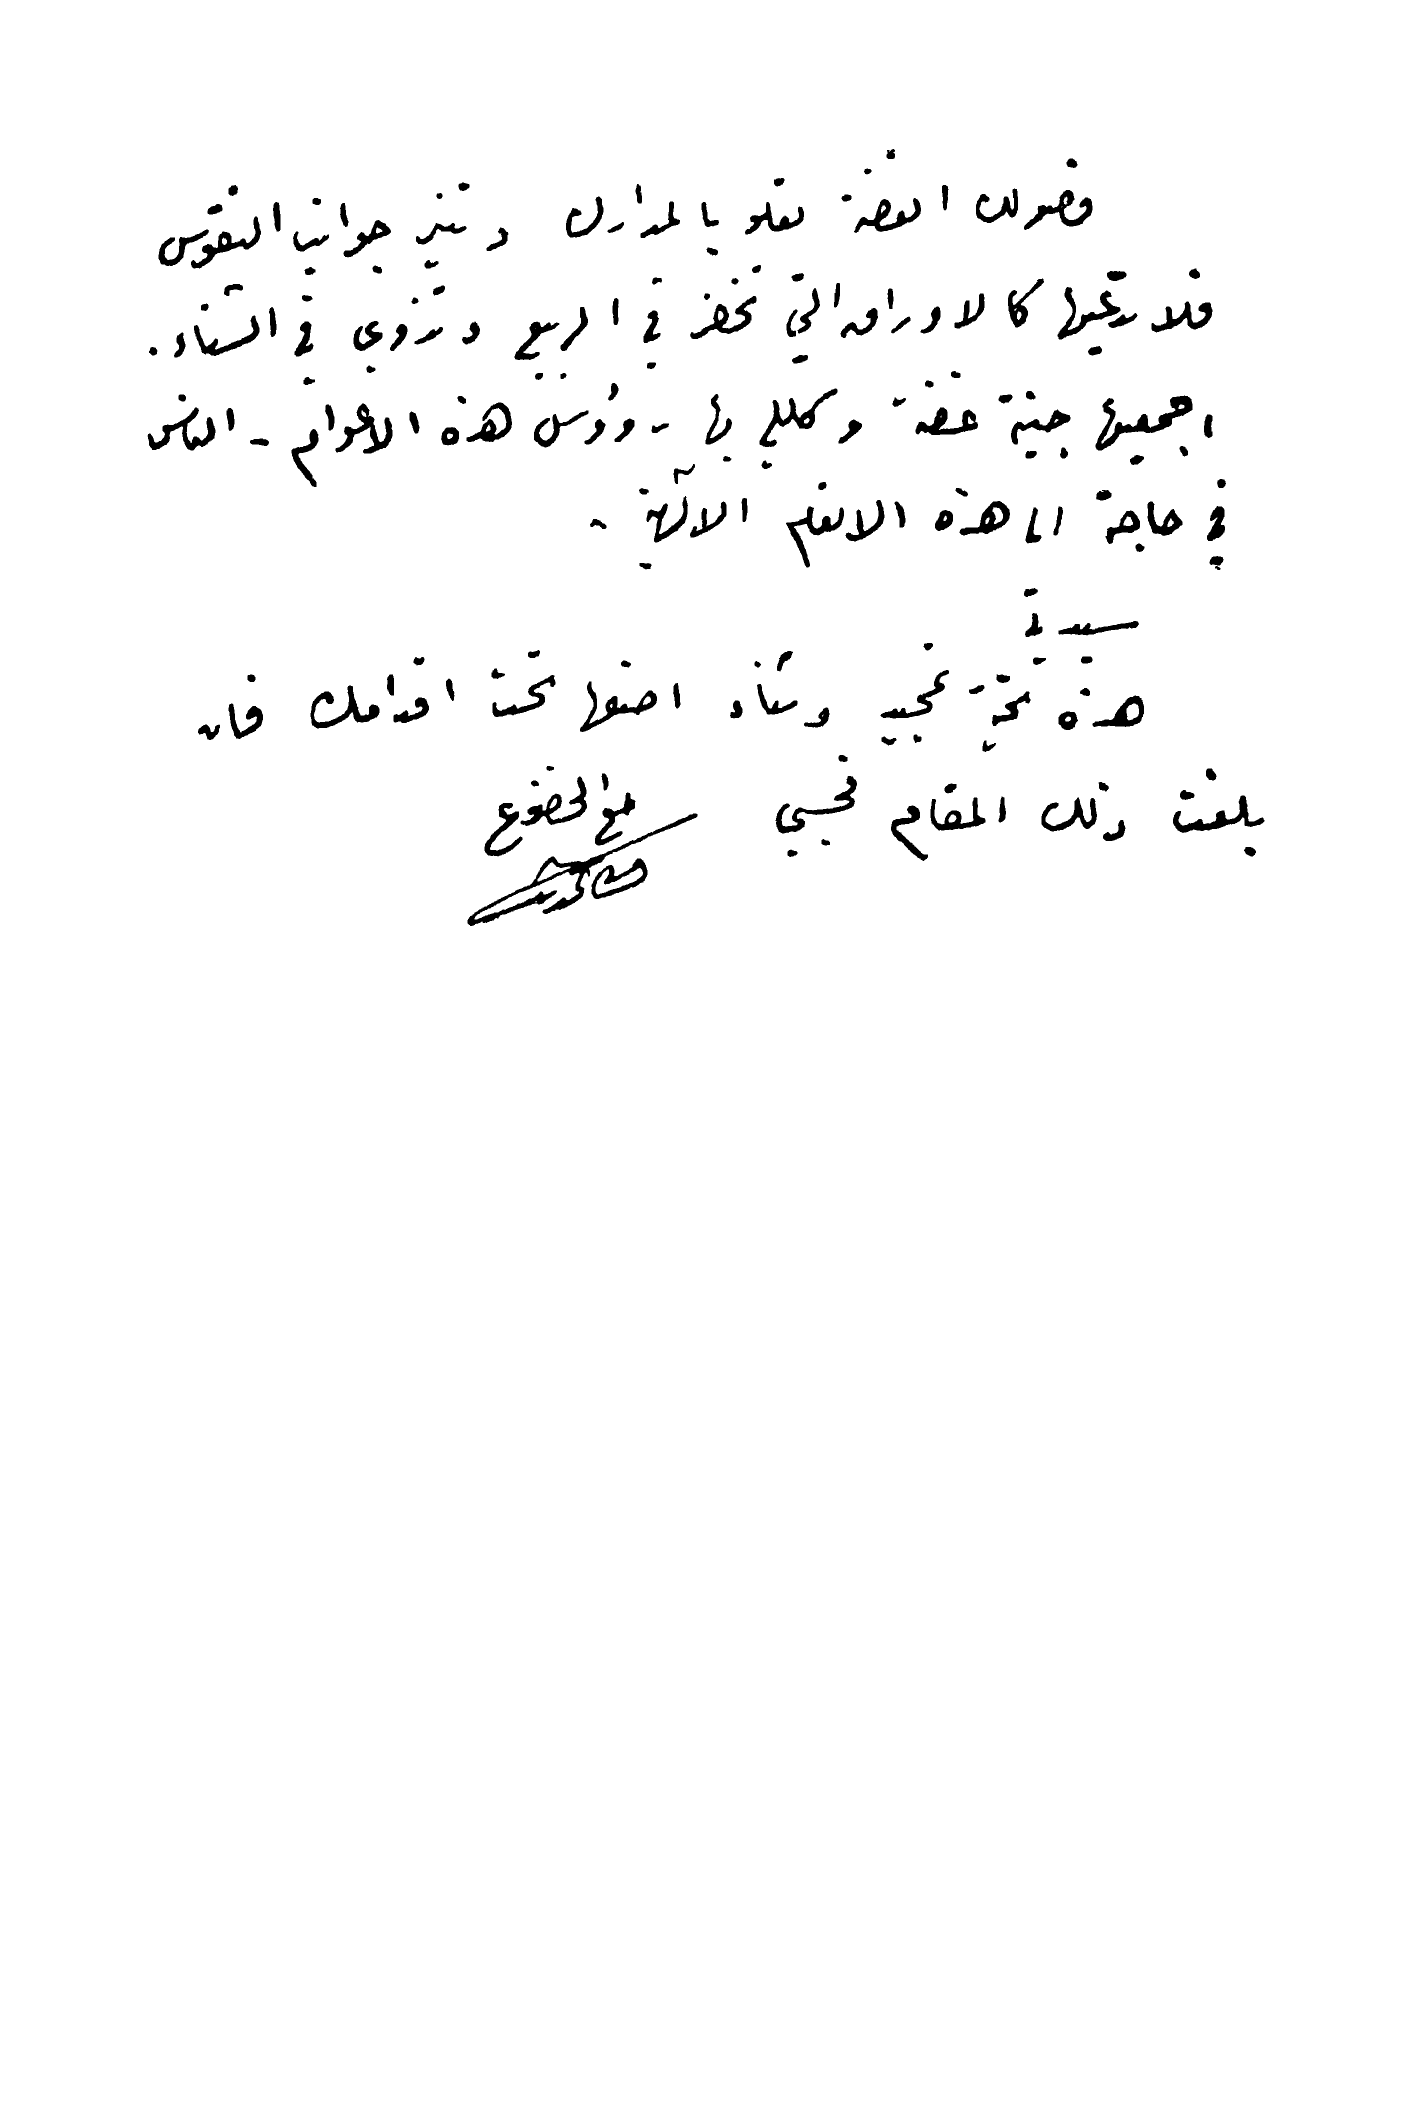 فصولك الغضة تعلو بالمدارك وتنير جوانب النفوس
فلا تدعيها كالاوراق التي تخضر في الربيع وتذوي في الشتاء.
اجمعيها جنينة غضة وكللي بها رؤوس هذه الاعوام - الناس
في حاجة الى هذه الانغام الالهية .
سيدتي
هذه تحية تمجيد وثناء اضعها تحت اقدامك فان
بلغت ذلك المقام فحسبي مع الخضوع